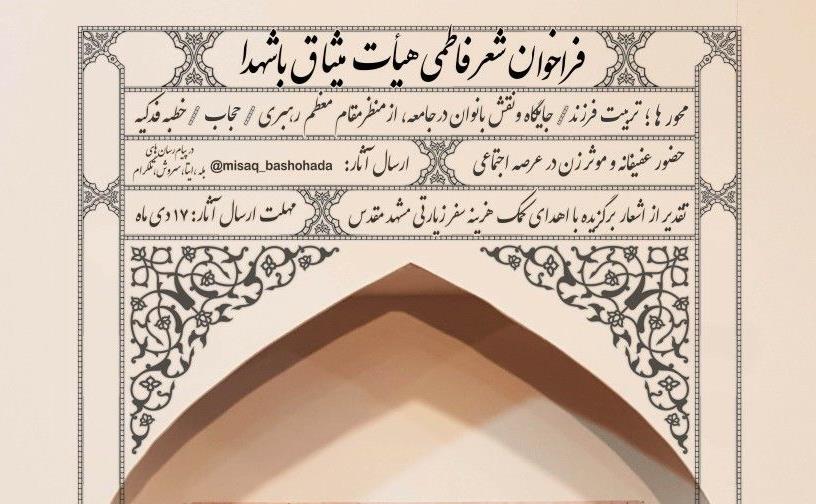 فراخوان شعر فاطمی هیأت میثاق باشهدا
محور ها؛ تربیت فرزند // جایگاه و نقش بانوان در جامعه، از منظر مقام معظم رهبری // حجاب // خطبه فدکیه
حضور عفیفانه و موثر زن در عرصه اجتماعی
ارسال آثار: @misaq_bashohada
در پیام رسان های
بله، ایتا، سروش، تلگرام
تقدیر از اشعار برگزیده با اهدای کمک هزینه سفر زیارتی مشهد مقدس
مهلت ارسال آثار: ۱۷ دی ماه